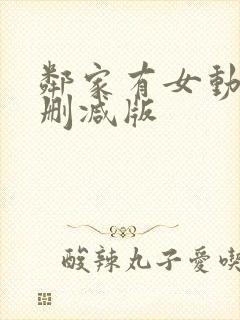 鄰家有女動
删减版
酸辣丸子愛喫